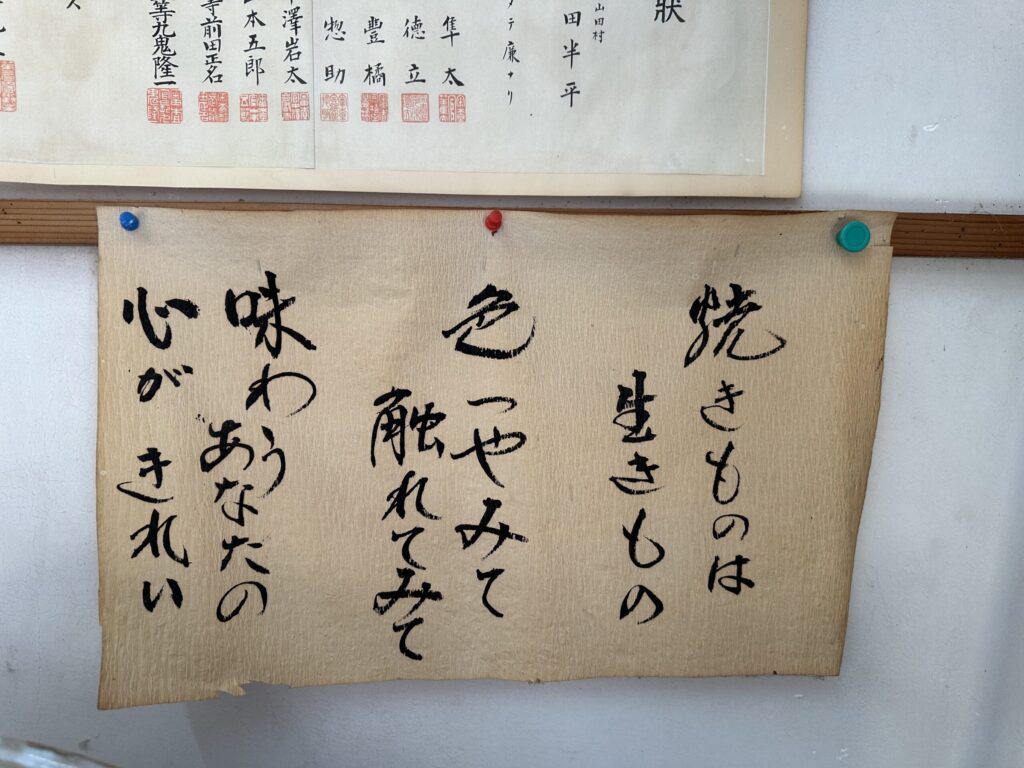 狀
山田村
田半平
タテ廉ナリ
隼太
德立
豊橘
惣助
澤岩太
本五郎
寺前田正名
等九鬼隆一
焼きものは
生きもの
色つやみて
触れてみて
味わう
あなたの
心がきれい